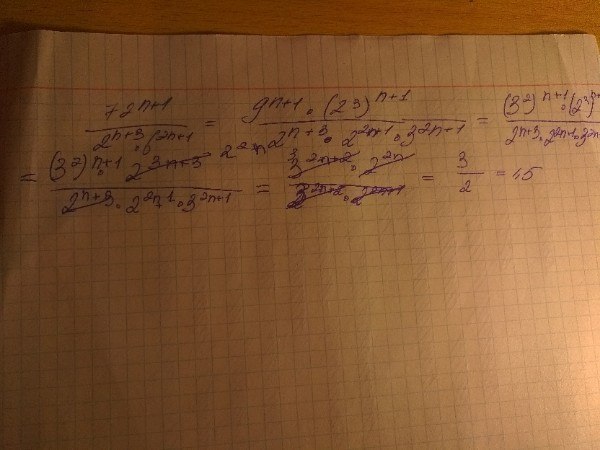 72^{n+1} / 2^{n+3} · 6^{2n+1} = 9^{n+1} · (2^3)^{n+1} / 2^{n+3} · 2^{2n+1} · 3^{2n+1} = (3^2)^{n+1} · (2^3)^{n+1} / 2^{n+3} · 2^{2n+1} · 3^{2n+1}
= (3^2)^{n+1} · 2^{3n+3} / 2^{n+3} · 2^{2n+1} · 3^{2n+1} = 3^{2n+2} · 2^{2n} / 3^{2n+1} · 2^{2n+1} = 3 / 2 = 1,5